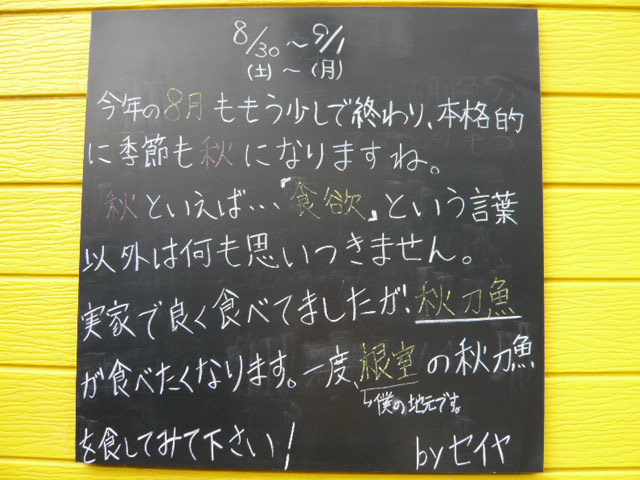 8/30〜9/1
(土)〜(月)
今年の8月ももう少しで終わり、本格的
に季節も秋になりますね。
秋といえば…『食欲』という言葉
以外は何も思いつきません。
実家で良く食べてましたが、秋刀魚
が食べたくなります。一度、根室の秋刀魚
↳僕の地元です。
を食してみて下さい!
byセイヤ